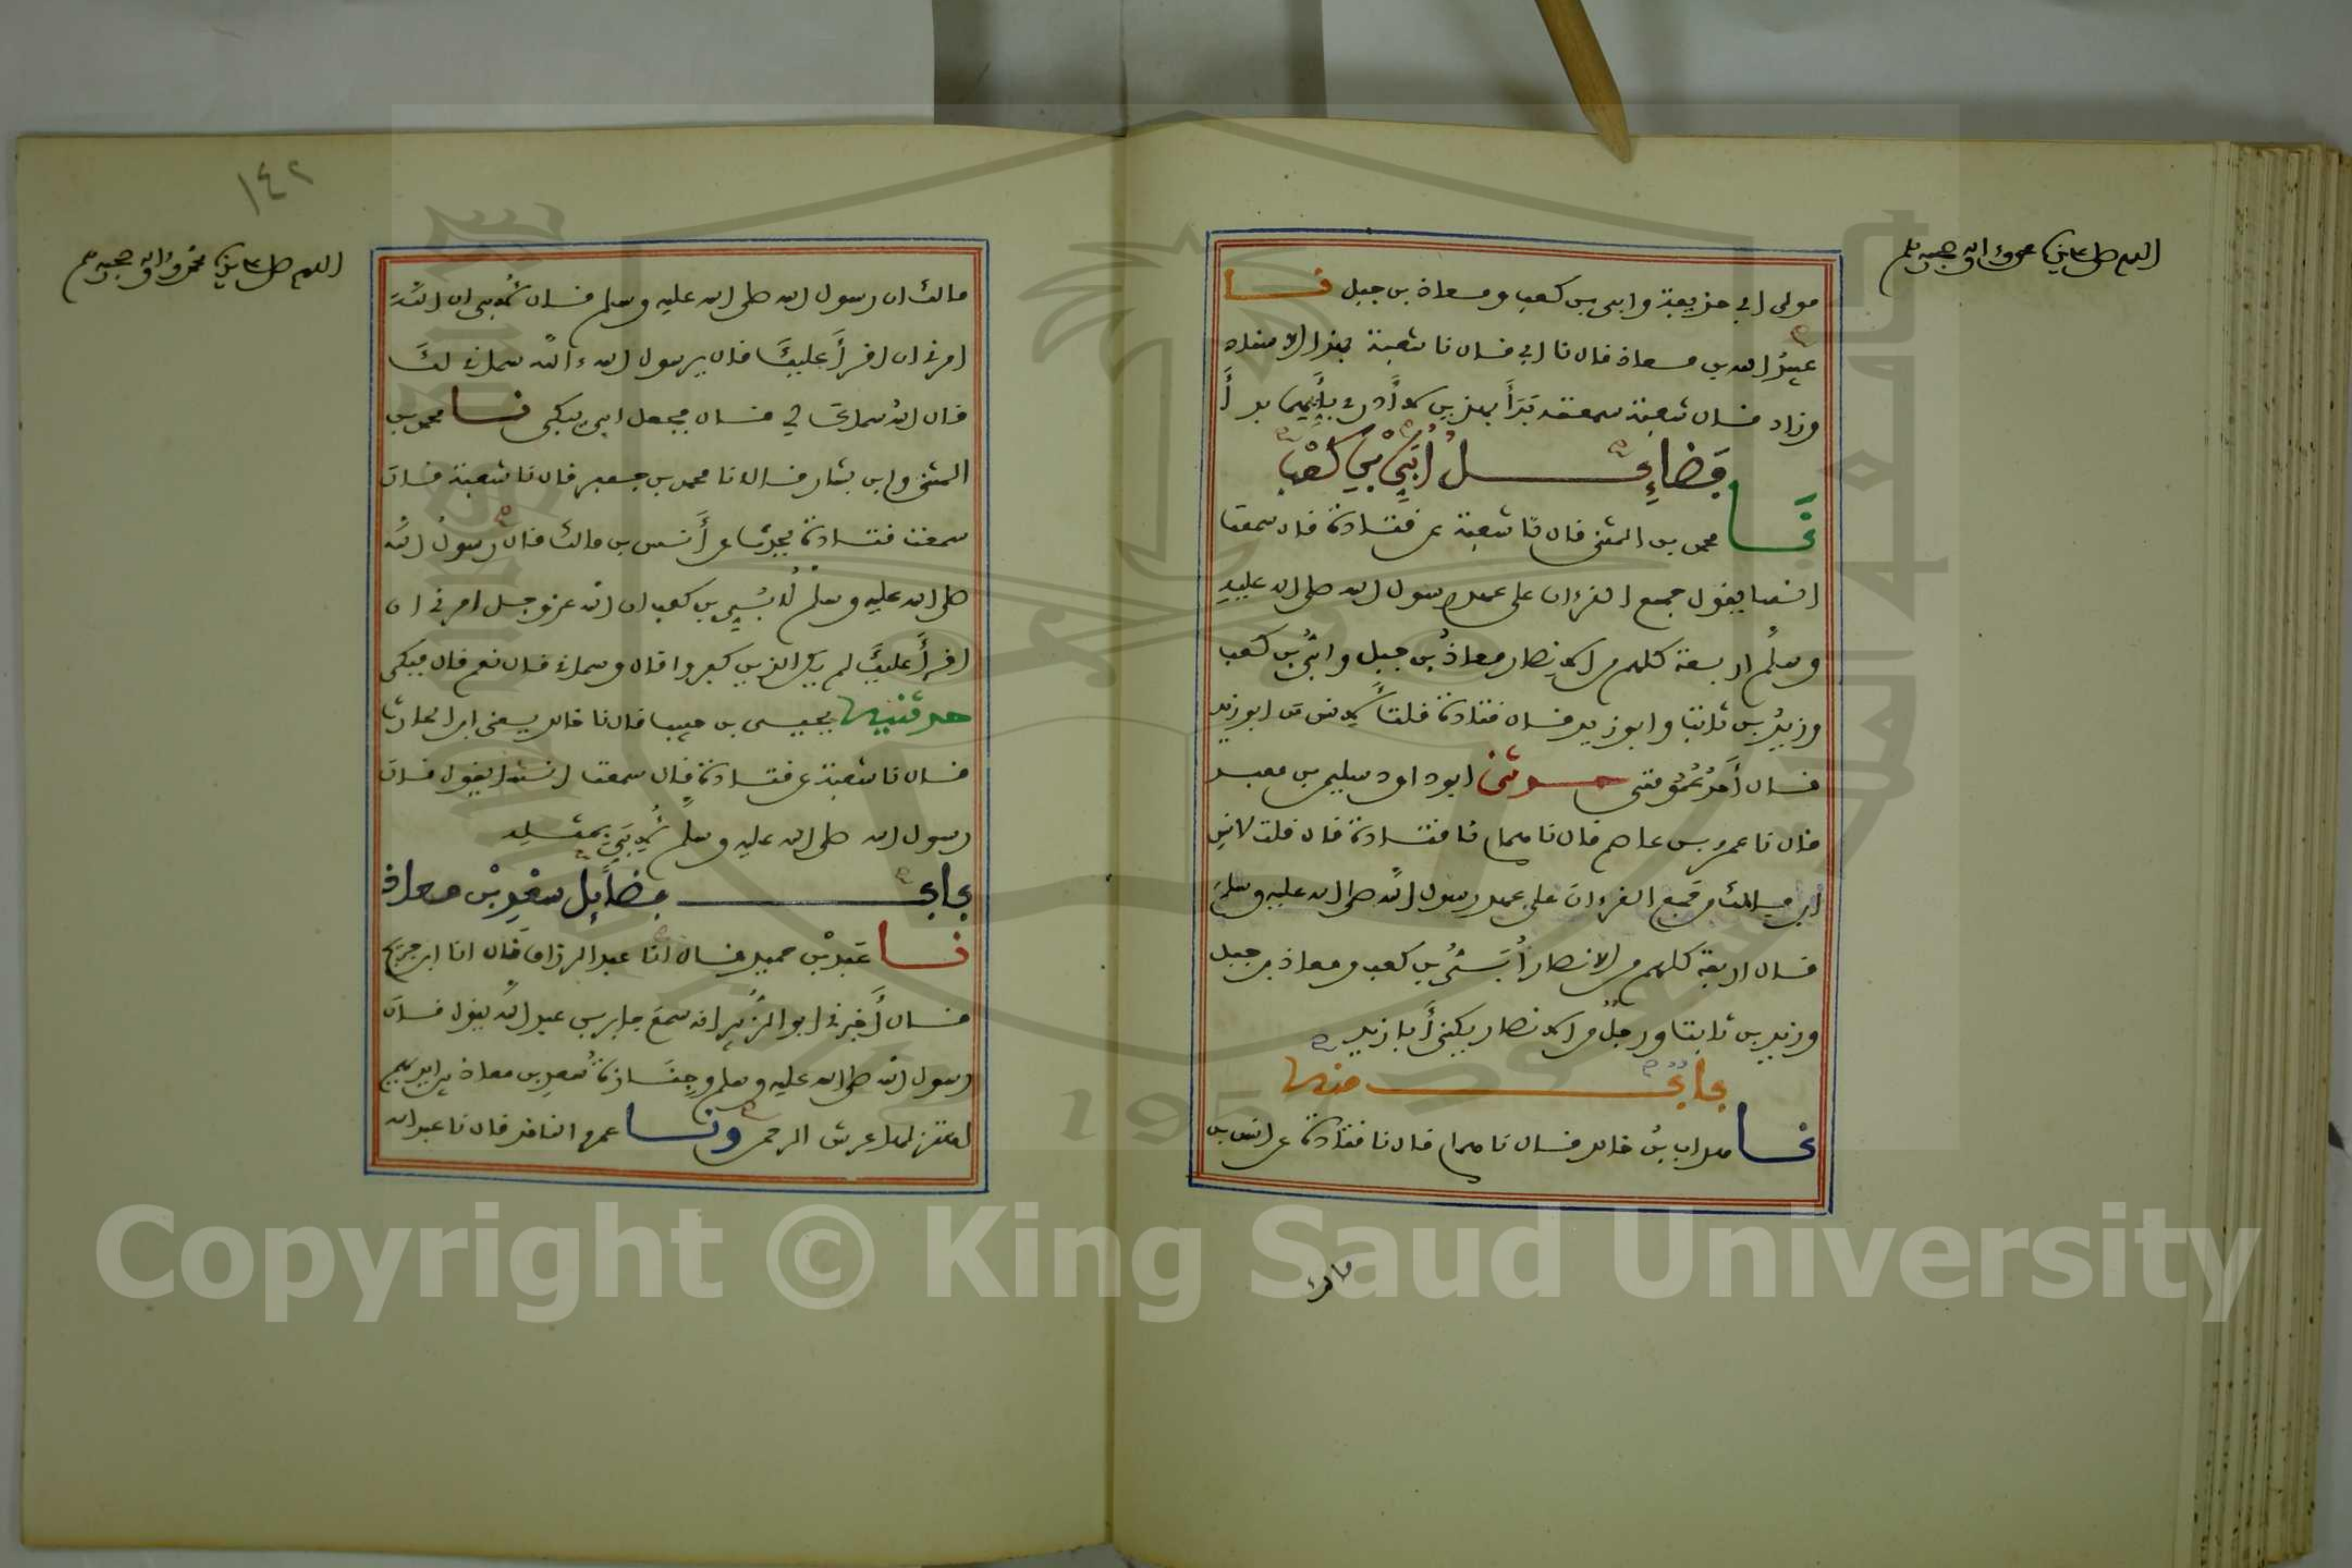 اللهم صل على سيدنا محمد وءاله وصحبه وسلم
مولى ابي حذيفة وابي بن كعب ومعاذ بن جبل نا
عبيد الله بن معاذ قال نا ابي قال نا شعبة بهذا الاسناد
وزاد قال شعبة سمعته بدأ بهذين لا أدري بأيهما بدأ
فضائل أبي بن كعب
نا محمد بن المثنى قال نا شعبة عن قتادة قال سمعت
انسا يقول جمع القرءان على عهد رسول الله صلى الله عليه
وسلم اربعة كلهم من الانصار معاذ بن جبل وابي بن كعب
وزيد بن ثابت وابو زيد قال قتادة قلت لانس من ابو زيد
قال أحد عمومتي حدثني ابو داود سليمن بن معبد
قال نا عمرو بن عاصم قال نا همام نا قتادة قال قلت لانس
ابن مالك من جمع القرءان على عهد رسول الله صلى الله عليه وسلم
قال اربعة كلهم من الانصار أبي بن كعب ومعاذ بن جبل
وزيد بن ثابت ورجل من الانصار يكنى أبا زيد
باب منه
نا هداب بن خالد قال نا همام قال نا قتادة عن انس بن
مالك
١٤٢
اللهم صل على سيدنا محمد وءاله وصحبه وسلم
مالك ان رسول الله صلى الله عليه وسلم قال لأبي ان الله
امرني ان اقرأ عليك قال يرسول الله ءالله سماني لك
قال الله سماك لي قال فجعل ابي يبكي نا محمد بن
المثنى وابن بشار قالا نا محمد بن جعفر قال نا شعبة قال
سمعت قتادة يحدث عن أنس بن مالك قال رسول الله
صلى الله عليه وسلم لأبي بن كعب ان الله عز وجل امرني ان
اقرأ عليك لم يكن الذين كفروا قال وسماني قال نعم قال فبكى
حدثنيه يحيى بن حبيب قال نا خالد يعني ابن الحارث
قال نا شعبة عن قتادة قال سمعت انسا يقول قال
رسول الله صلى الله عليه وسلم لأبي بمثله
باب فضائل سعد بن معاذ
نا عبد بن حميد قال انا عبد الرزاق قال انا ابن جريج
قال أخبرني ابو الزبير انه سمع جابر بن عبد الله يقول قال
رسول الله صلى الله عليه وسلم وجنازة سعد بن معاذ بين ايديهم
اهتز لها عرش الرحمن ونا عمرو الناقد قال نا عبد الله
Copyright © King Saud University
1957